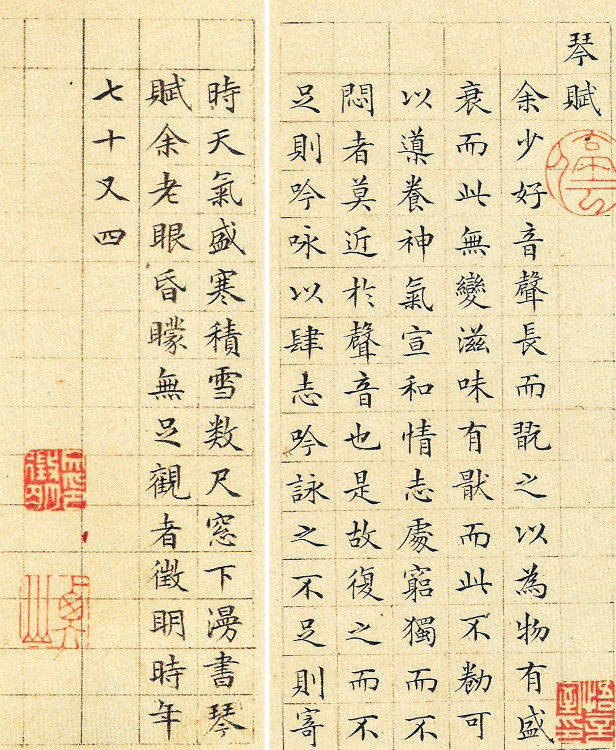 琴賦
余少好音聲長而翫之以為物有盛
衰而此無變滋味有猒而此不勌可
以導養神氣宣和情志處窮獨而不
悶者莫近於聲音也是故復之而不
足則吟咏以肆志吟詠之不足則寄
時天氣盛寒積雪数尺窓下漫書琴
賦余老眼昏矇無足觀者徵明時年
七十又四
停雲
悟言室印
衡山